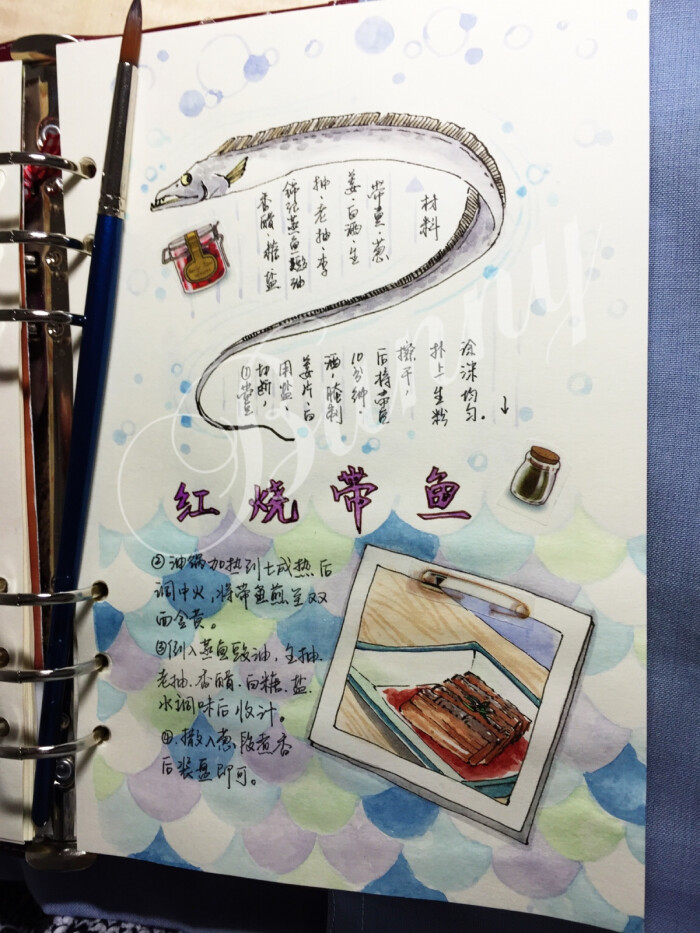 材料
带鱼·葱
姜·白酒·生
抽·老抽·李
锦记蒸鱼豉油
香醋·糖·盐
①带鱼
切断,
用盐,
姜片·白
酒,腌制
10分钟,
后将带鱼
擦干,
扑上生粉
涂沫均匀。
红烧带鱼
②油锅加热到七成热后
调中火,将带鱼煎至双
面金黄。
③倒入蒸鱼豉油,生抽.
老抽.香醋.白糖.盐.
水调味后收汁。
④.撒入葱段煮香
后装盘即可。